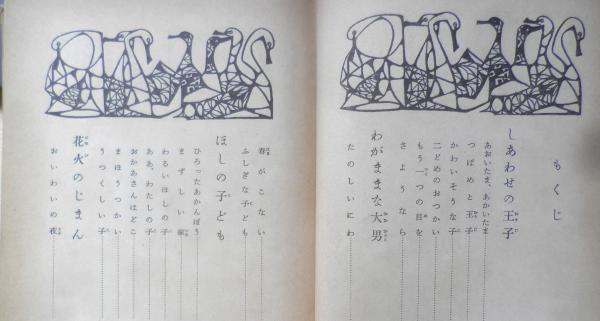 もくじ
しあわせの王子
あおいたま、あかいたま
つばめと王子
かわいそうな子
二どめのおつかい
もう一つの目を
さようなら
わがままな大男
たのしいにわ
春がこない
ふしぎな子ども
ほしの子ども
ひろったあかんぼう
まずしい家
わるいほしの子
ああ、わたしの子
おかあさんはどこ
まほうつかい
うつくしい子
花火のじまん
おいわいの夜